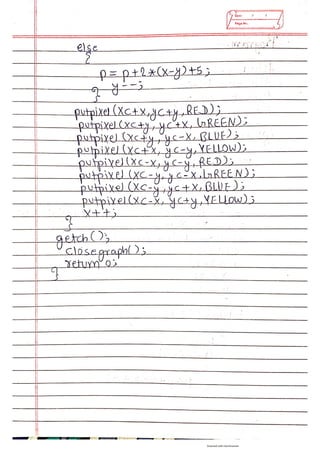 else
{
p = p+2*(x-y)+5;
y--;
}
putpixel (xc+x, yc+y, RED);
putpixel (xc+y, yc+x, GREEN);
putpixel (xc+y, yc-x, BLUE);
putpixel (xc+x, yc-y, YELLOW);
putpixel (xc-x, yc-y, RED);
putpixel (xc-y, yc-x, GREEN);
putpixel (xc-y, yc+x, BLUE);
putpixel (xc-x, yc+y, YELLOW);
x++;
}
getch();
closegraph();
return 0;
}